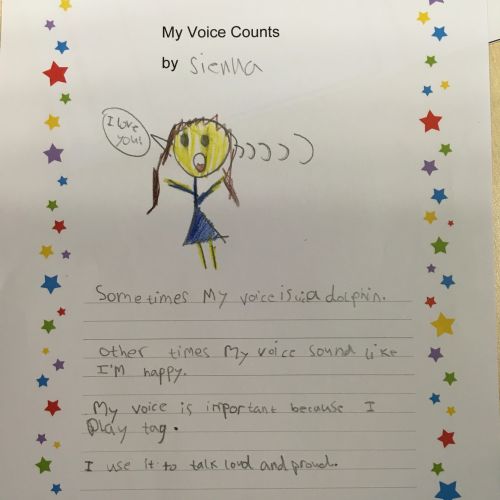 My Voice Counts
by Sienna
I love
you!
Sometimes My voice is a dolphin.
Other times My voice sound like
I'M happy.
My voice is important because I
Play tag.
I use it to talk loud and proud.